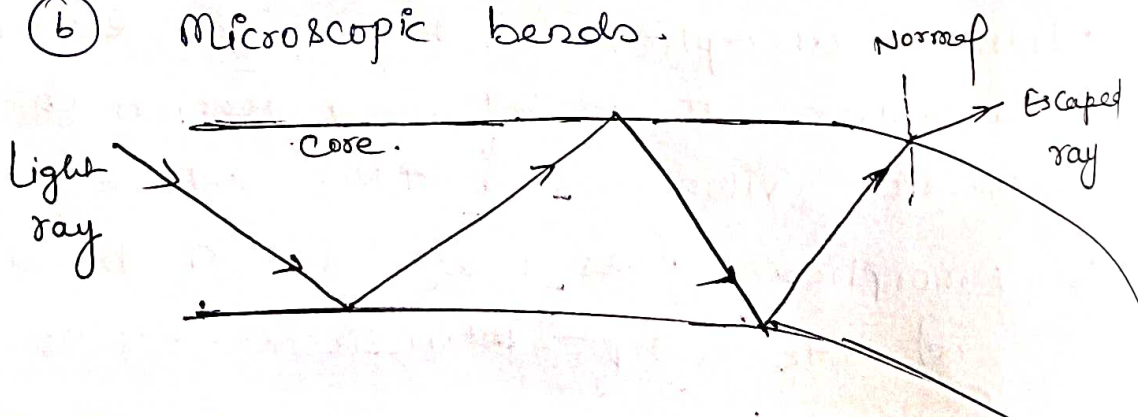 (b) Microscopic bends.
Normal
Escaped
ray
core.
Light
ray